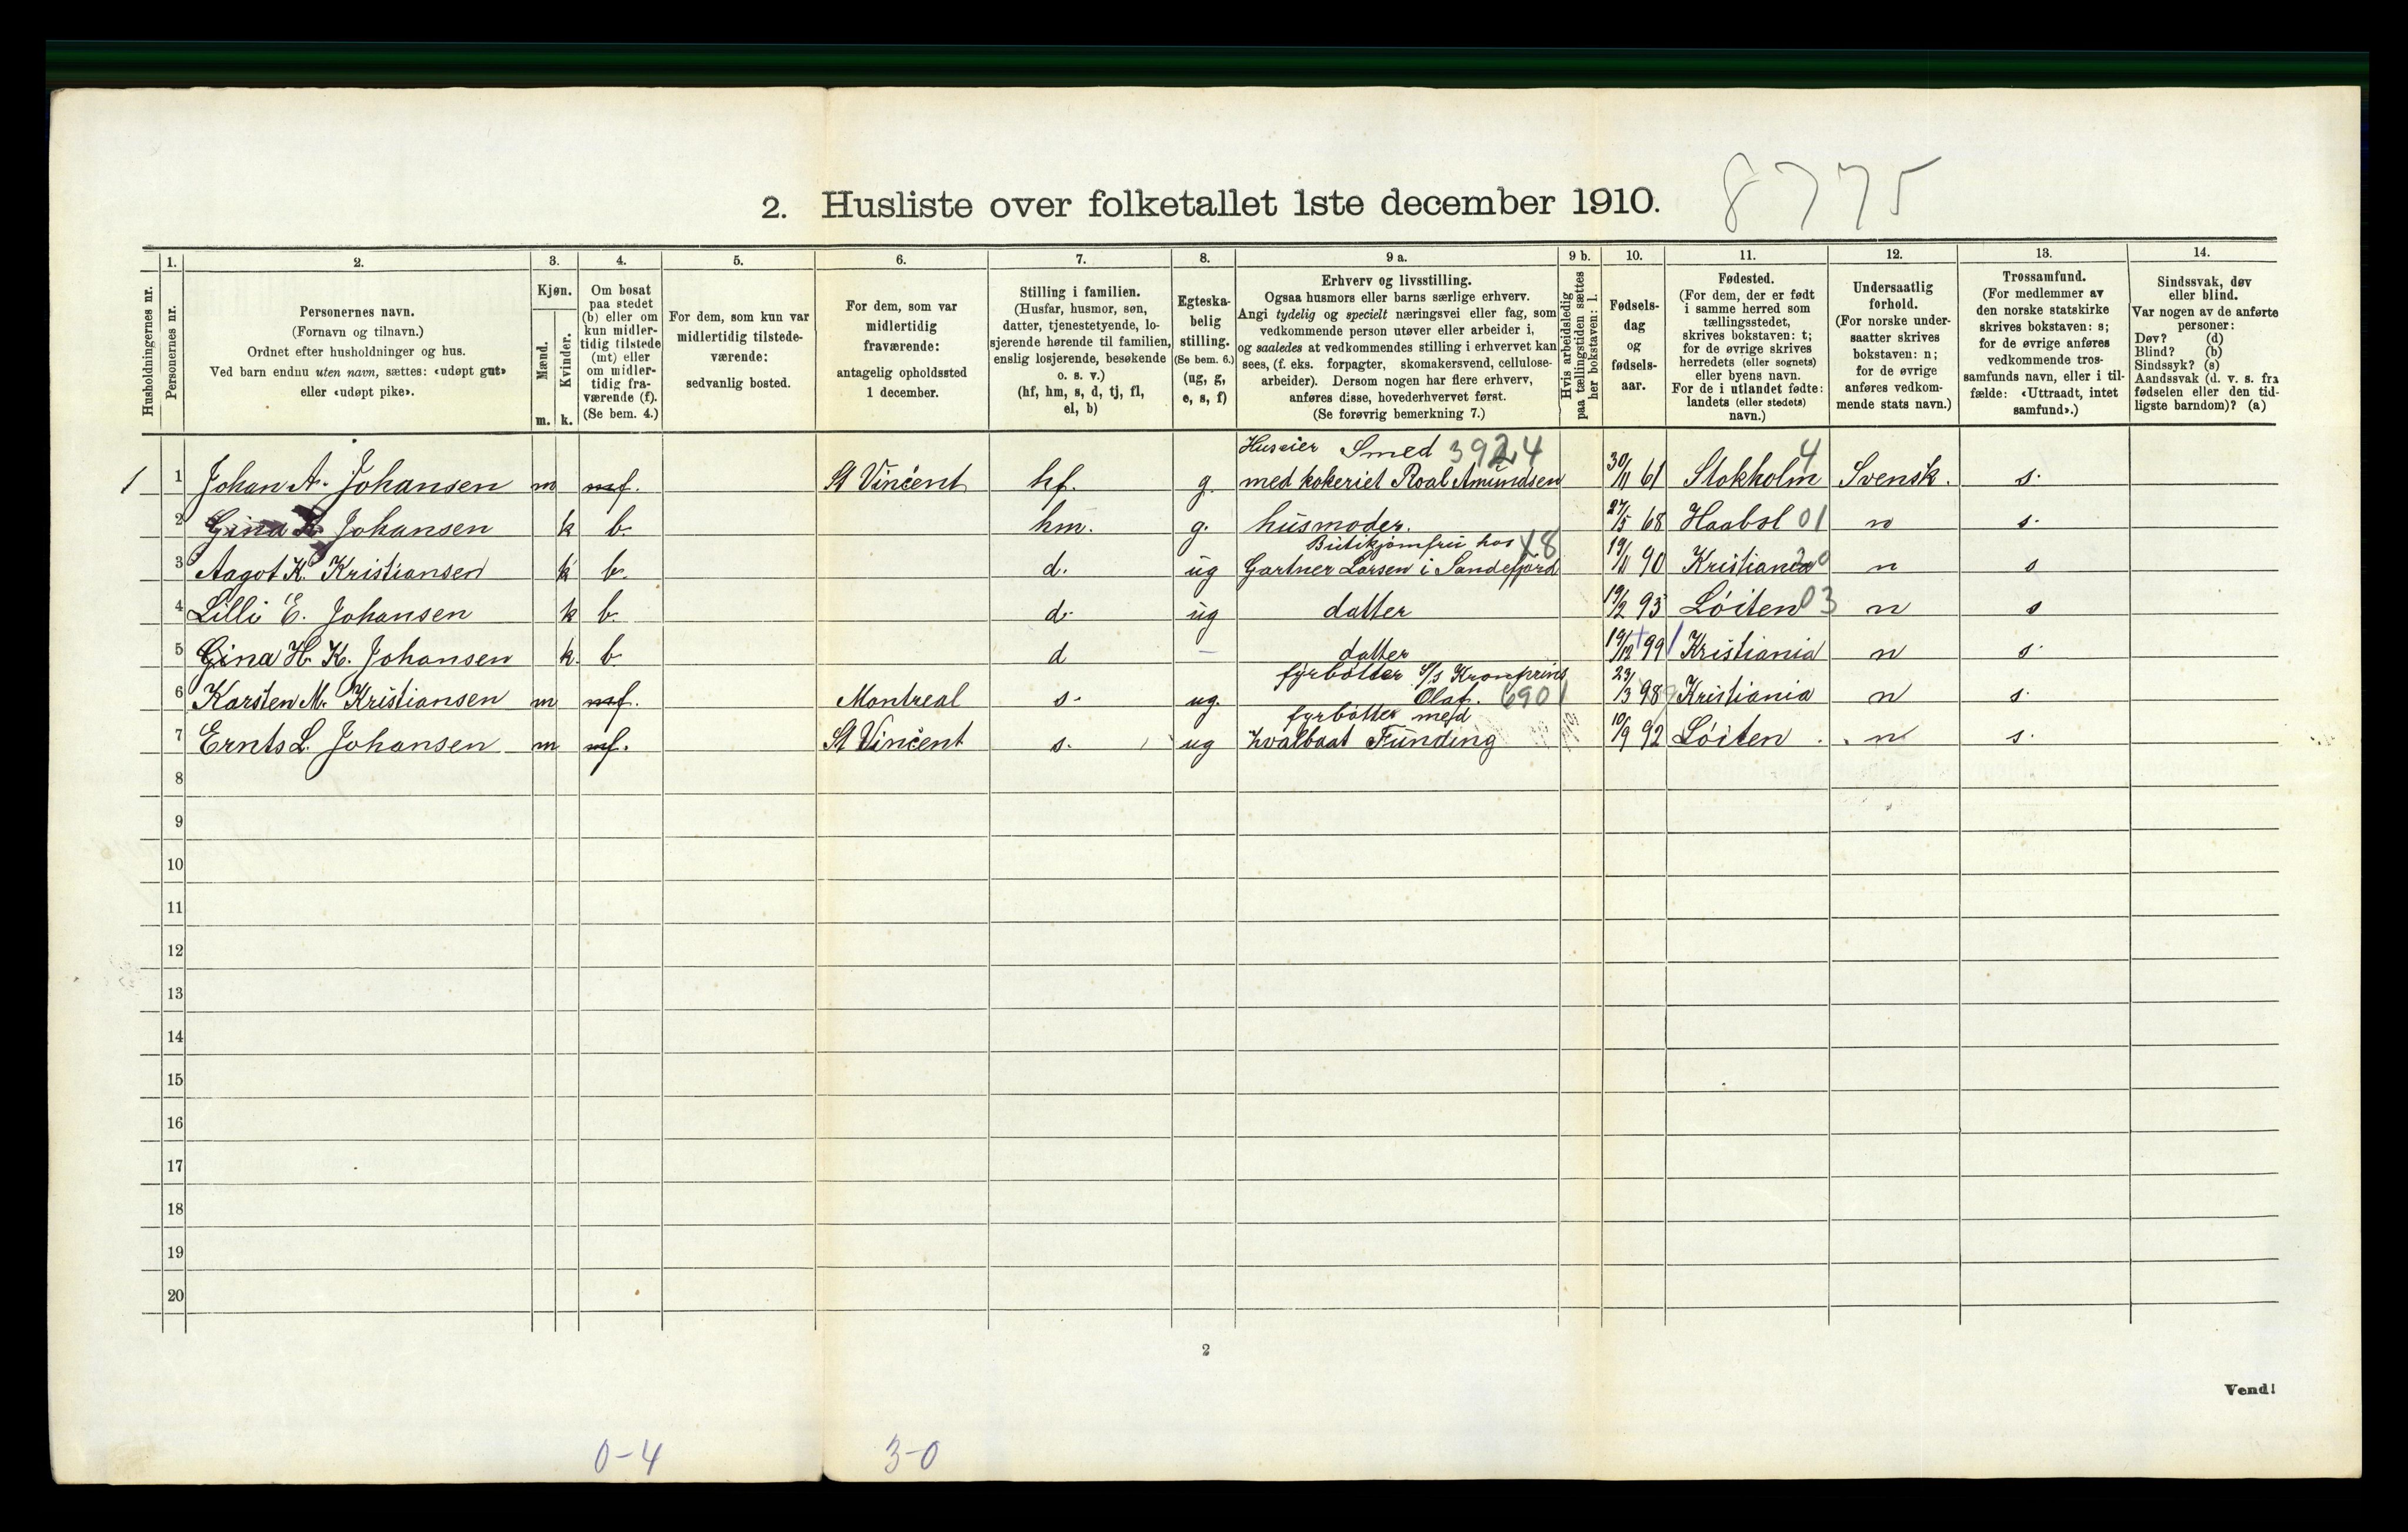 8775
2. Husliste over folketallet 1ste december 1910.
Husholdningernes nr.
1.
Personernes nr.
2.
Personernes navn.
(Fornavn og tilnavn.)
Ordnet efter husholdninger og hus.
Ved barn endnu uten navn, sættes: «udøpt gut»
eller «udøpt pike».
3.
Kjøn.
Mænd.
Kvinder.
m. k.
4.
Om bosat
paa stedet
(b) eller om
kun midler-
tidig tilstede
(mt) eller
om midler-
tidig fra-
værende (f).
(Se bem. 4.)
5.
For dem, som kun var
midlertidig tilstede-
værende:
sedvanlig bosted.
6.
For dem, som var
midlertidig
fraværende:
antagelig opholdssted
1 december.
7.
Stilling i familien.
(Husfar, husmor, søn,
datter, tjenestetyende, lo-
sjerende hørende til familien,
enslig losjerende, besøkende
o. s. v.)
(hf, hm, s, d, tj, fl,
el, b)
8.
Egteska-
belig
stilling.
(Se bem. 6.)
(ug, g,
e, s, f)
9 a.
Erhverv og livsstilling.
Ogsaa husmors eller barns særlige erhverv.
Angi tydelig og specielt næringsvei eller fag, som
vedkommende person utøver eller arbeider i,
og saaledes at vedkommendes stilling i erhvervet kan
sees, (f. eks. forpagter, skomakersvend, cellulose-
arbeider). Dersom nogen har flere erhverv,
anføres disse, hovederhvervet først.
(Se forøvrig bemerkning 7.)
9 b.
Hvis arbeidsledig
paa tællingstiden sættes
her bokstaven: l.
10.
Fødsels-
dag
og
fødsels-
aar.
11.
Fødested.
(For dem, der er født
i samme herred som
tællingsstedet,
skrives bokstaven: t;
for de øvrige skrives
herredets (eller sognets)
eller byens navn.
For de i utlandet fødte:
landets (eller stedets)
navn.)
12.
Undersaatlig
forhold.
(For norske under-
saatter skrives
bokstaven: n;
for de øvrige
anføres vedkom-
mende stats navn.)
13.
Trossamfund.
(For medlemmer av
den norske statskirke
skrives bokstaven: s;
for de øvrige anføres
vedkommende tros-
samfunds navn, eller i til-
fælde: «Uttraadt, intet
samfund».)
14.
Sindssvak, døv
eller blind.
Var nogen av de anførte
personer:
Døv? (d)
Blind? (b)
Sindssyk? (s)
Aandssvak (d. v. s. fra
fødselen eller den tid-
ligste barndom)? (a)
Huseier Smed 3924
1 1 Johan A. Johansen m mf. St Vincent hf. g. med kokeriet Roal Amundsen 30/11 61 Stokholm 4 Svensk. s.
2 Gina Johansen k b. hm. g. husmoder. 27/5 68 Haabøl 01 n s.
Butikjomfru hos
3 Aagot K. Kristiansen k b. d. ug Gartner Larsen i Sandefjord 19/11 90 Kristiania n s
4 Lilli E. Johansen k b. d. ug datter 19/2 95 Löiten 03 n s
5 Gina H. K. Johansen k. b d – datter 19/12 99 Kristiania n s.
fyrbötter s/s Kronprins
6 Karsten M. Kristiansen m mf. Montreal s. ug. Olaf. 6901 23/3 98 Kristiania n s.
fyrbötter med
7 Ernts L. Johansen m mf. St Vincent s. ug hvalbaat Funding 10/9 92 Löiten. n s.
8
9
10
11
12
13
14
15
16
17
18
19
20
2
Vend!
0-4 3-0